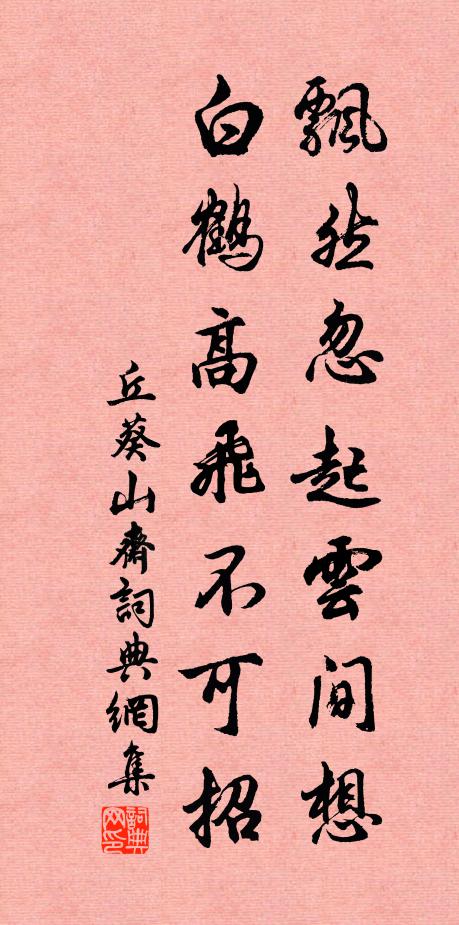 飄然忽起雲間想
白鶴高飛不可招
丘葵山齋詞典網集
詞典网印